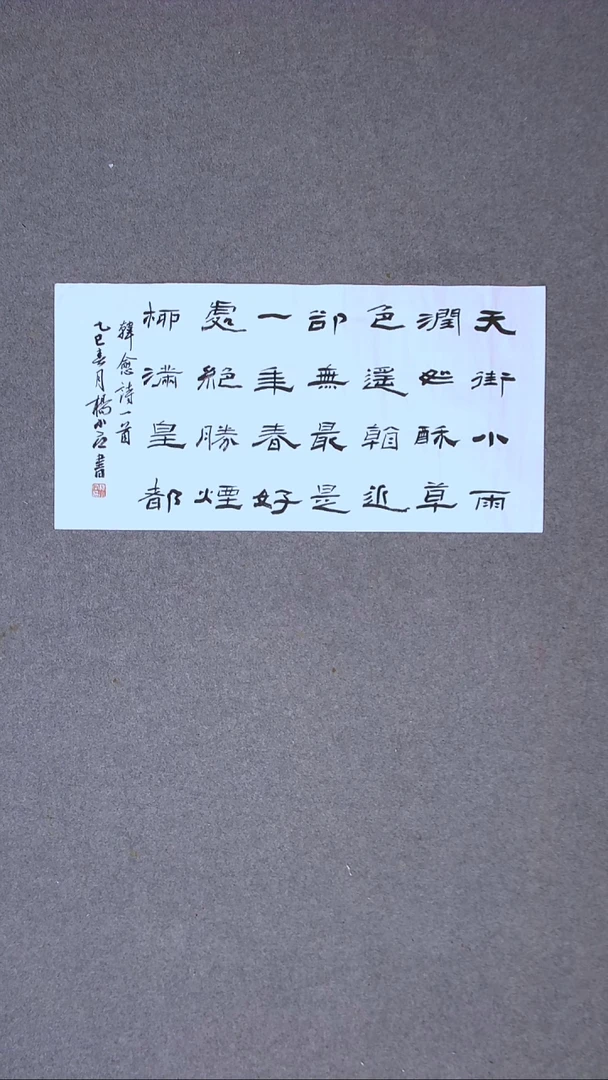 天街小雨
潤如酥草
色遥看近
卻無最是
一年春好
處絕勝煙
柳滿皇都
韓愈詩一首
乙巳春月 小 書